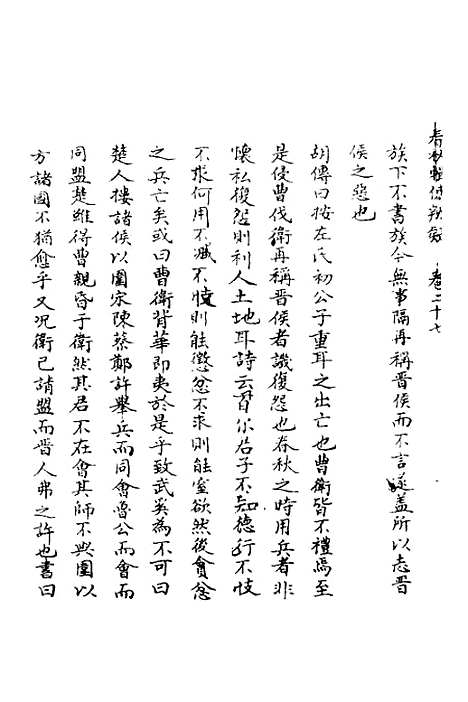 春秋輯傳辨疑 卷二十七
族下不書族今無事隔再稱晉侯而不言遂蓋所以志晉
侯之惡也
胡傳曰按左氏初公子重耳之出亡也曹衛皆不禮焉至
是侵曹伐衛再稱晉侯者譏復怨也春秋之時用兵者非
懷私復怨則利人土地耳詩云百爾君子不知德行不忮
不求何用不臧不忮則能懲忿不求則能窒欲然後貪忿
之兵亡矣或曰曹衛背華即夷於是乎致武奚為不可曰
楚人摟諸侯以圍宋陳蔡鄭許舉兵而同會魯公而會而
同盟楚雖得曹親昏于衛然其君不在會其師不與圍以
方諸國不猶愈乎又況衛已請盟而晉人弗之許也書曰